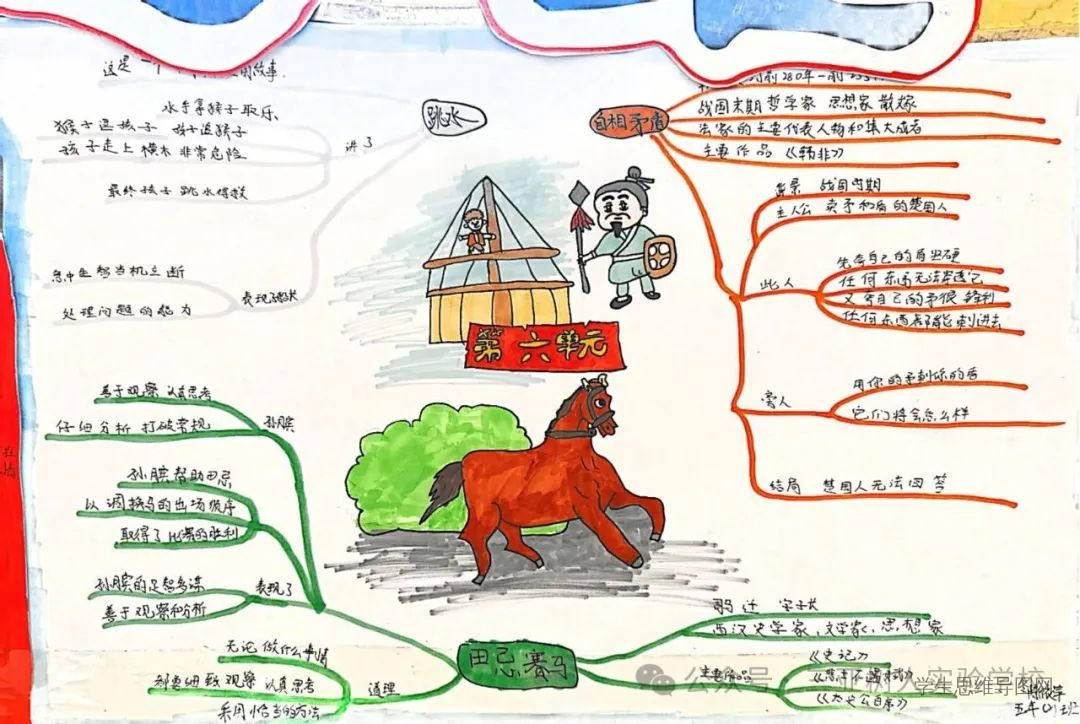 这是一个
的故事.
水手拿猴子取乐
猴子逗孩子 孩子追猴子
孩子走上横木 非常危险
最终孩子跳水得救
讲了
跳水
急中生智当机立断
处理问题的能力
表现了船长
自相矛盾
战国末期哲学家 思想家 散文家
法家的主要代表人物和集大成者
主要作品《韩非》
背景 战国时期
主人公 卖矛和盾的楚国人
此人
先夸自己的盾坚硬
任何东西无法穿透它
又夸自己的矛很锋利
任何东西都能刺进去
旁人
用你的矛刺你的盾
它们将会怎么样
结局 楚国人无法回答
第六单元
善于观察 认真思考
仔细分析 打破常规
孙膑
孙膑帮助田忌
以调换马的出场顺序
取得了比赛的胜利
孙膑的足智多谋
善于观察和分析
表现了
无论做什么事情
都要细致观察 认真思考
采用恰当的方法
道理
田忌赛马
司马迁 字子长
西汉史学家、文学家、思想家
主要作品
《史记》
《悲士不遇赋》
《太史公自序》
公众号
树人实验学校
学生思维导图网
五年(1)班